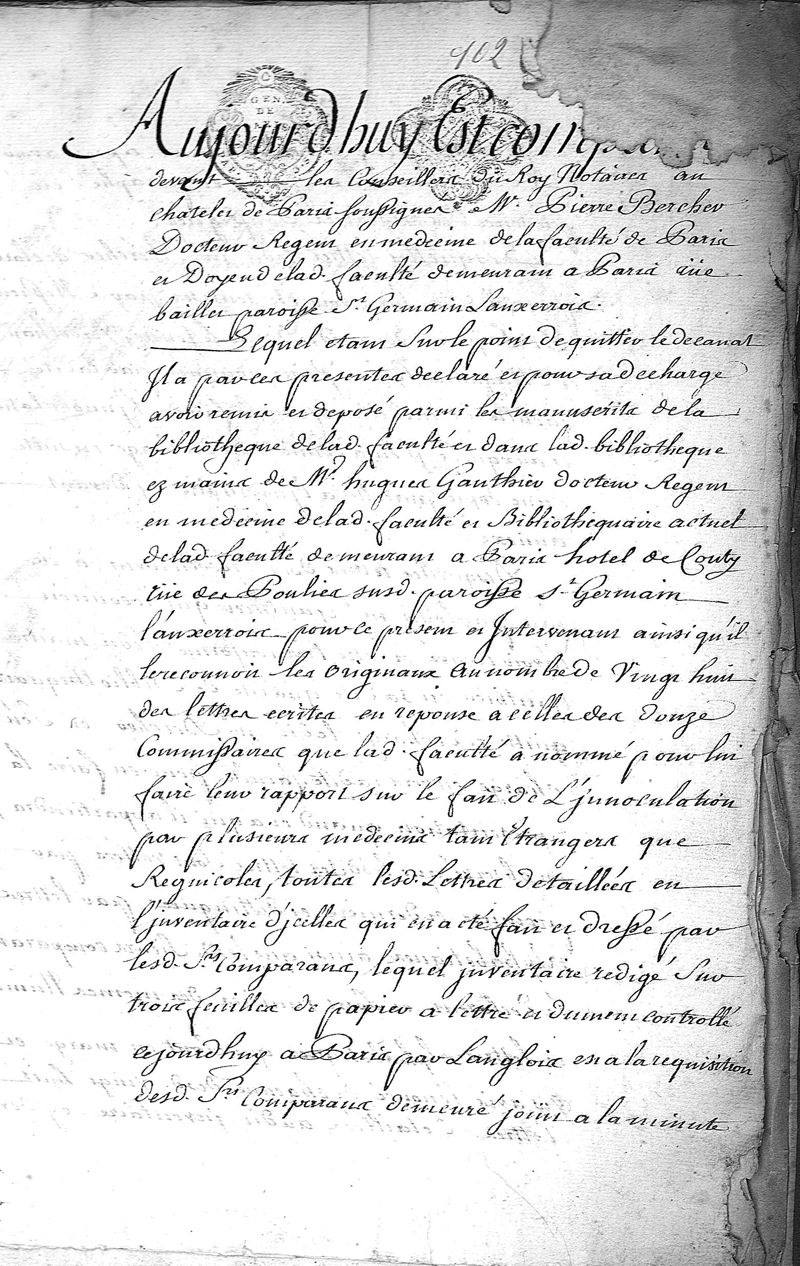 402
GEN. DE
Aujourdhuy Est comp
devant les Conseillers du Roy Notaires au
chatelet de Paris soussignés Mr. Pierre Bercher
Docteur Regent en medecine de la faculté de Paris
et Doyen de lad. faculté demeurant a Paris rüe
baillet paroisse St. Germain Lauxerrois.
Lequel etant Sur le point de quitter le decanat
Il a par ces presentes declaré et pour sa decharge
avoir remis et deposé parmi les manuscrits de la
bibliotheque de lad. faculté et dans lad. bibliotheque
ez mains de Mr. hugues Gauthier docteur Regent
en medecine de lad. faculté et Bibliothequaire actuel
de lad. faculté demeurant a Paris hotel de Conty
rüe des Poulies susd. paroisse St. Germain
l'auxerrois pour ce present et Intervenant ainsi qu'il
le reconnoit les originaux au nombre de Vingt huit
des lettres ecrites en reponse a celles des douze
Commissaires que lad. faculté a nommé pour lui
faire leur rapport sur le fait de L'jnoculation
par plusieurs medecins tant Etrangers que
Regnicoles, toutes lesd. Lettres detaillées en
l'jnventaire d'jcelles qui en a eté fait et dressé par
lesd. Srs. Comparans, lequel jnventaire redigé Sur
trois feuilles de papier a lettre et dument controllé
cejourdhuy a Paris par Langlois en a la requisition
desd. Srs. Comparans demeuré joint a la minute